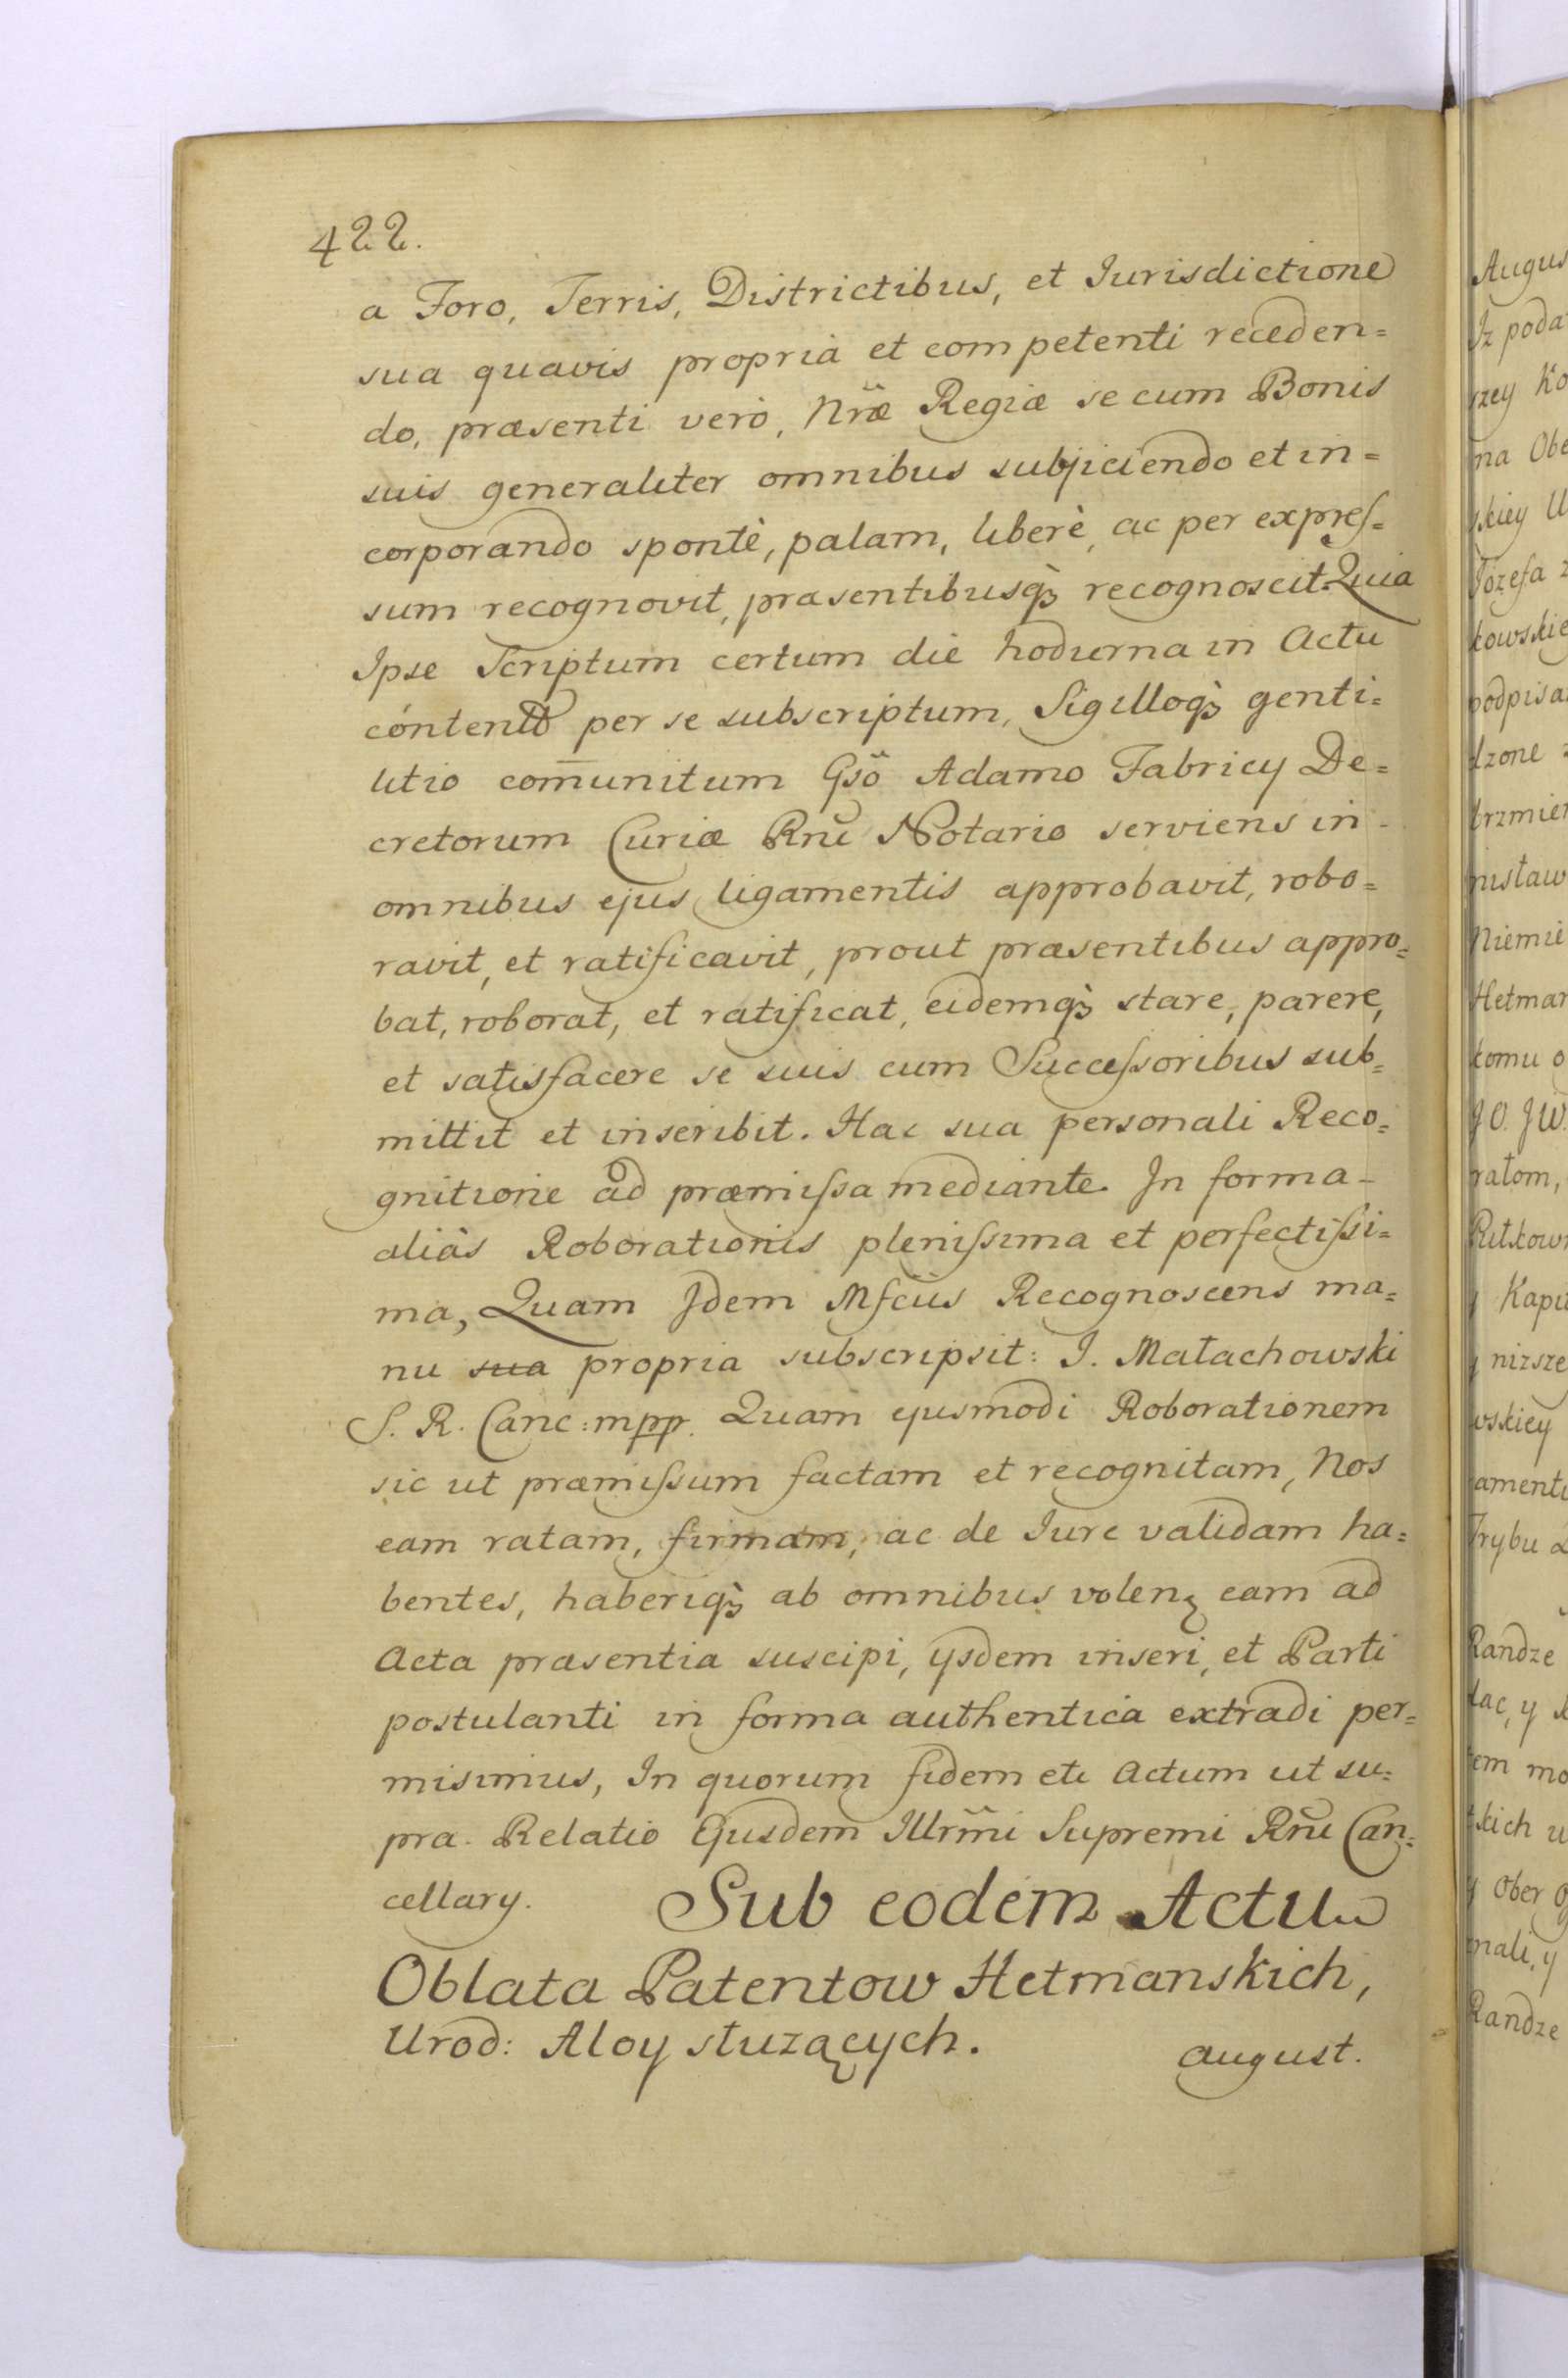 422.
a Foro, Terris, Districtibus, et Iurisdictione
sua quavis propria et competenti receden=
do, præsenti verò, Nræ Regiæ se cum Bonis
suis generaliter omnibus subjiciendo et in=
corporando spontè, palam, liberè, ac per expreſ=
sum recognovit, præsentibusq̀ recognoscit. Quia
Ipse Scriptum certum die hodierna in Actu
content per se subscriptum, Sigilloq̀ genti=
litio com̄unitum Gsö Adamo Fabricy De=
cretorum Curiæ Rnĩ Notario serviens in-
omnibus ejus ligamentis approbavit, robo=
ravit, et ratificavit, prout præsentibus appro=
bat, roborat, et ratificat, eidemq̀ stare, parere,
et satisfacere se suis cum Succeſsoribus sub=
mittit et inscribit. Hac sua personali Reco=
gnitione ad præmiſsa mediante. In forma-
aliàs Roborationis pleniſsima et perfectiſsi=
ma, Quam Idem Mfcus Recognoscens ma=
nu sua propria subscripsit: J. Małachowski
S. R. Canc: mpp. Quam ejusmodi Roborationem
sic ut præmiſsum factam et recognitam, Nos
eam ratam, firmam, ac de Iure validam ha=
bentes, haberiq̀ ab omnibus volen eam ad
Acta præsentia suscipi, ysdem inseri, et Parti
postulanti in forma authentica extradi per=
misimus, In quorum fidem etc Actum ut su=
pra. Relatio Ejusdem Illrm̃i Supremi Rnĩ Can=
cellary. Sub eodem Actu
Oblata Patentow Hetmanskich,
Urod: Aloy słuzących.
august.
Augus
Iz poda
szey Ko
na Obe
skiey U
Jozefa z
kowskie
podpisa
dzone z
brzmien
nisław
Niemie
Hetman
komu o
JO. JW.
ratom,
Ritkow
y Kapi
y nizsze
wskiey
amenti
Trybu
Randze
tac, y
tem mo
skich u
y Ober
nali, y
Randze